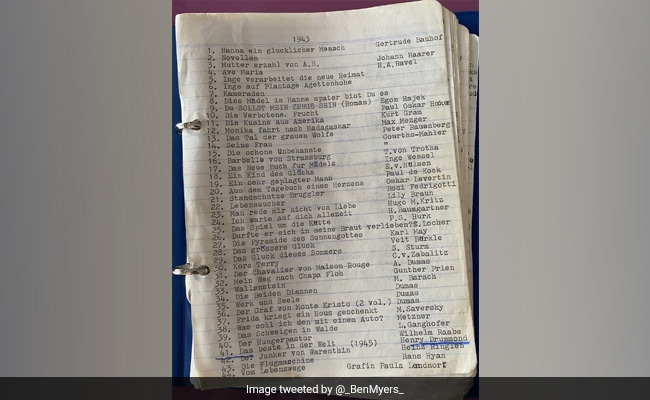 1943
1. Hanna ein glucklicher Mensch Gertrude Bauhof
2. Novellen
3. Mutter erzahl von A.H. Johann Haarer
4. Ave Maria H.A.Ravel
5. Inge verarbeitet die neue Heimat
6. Inge auf Plantage Agettenhohe
7. Kameraden
8. Dies Mädel is Hanne später bist Du es
9. Du SOLLST MEIN ZEUGE SEIN (Roman) Egon Hajek
10. Die Verbotene. Frucht Paul Oskar
11. Die Kusine aus Amerika Kurt Gram
12. Monika fahrt nach Madagaskar Max Mezger
13. Das Tal der grauen Wolfe Peter Rauenberg
14. Seine Frau Courths-Mahler
15. Die schone Unbekannte "
16. Barbelle von Strassburg T.von Trotha
17. Das Neue Buch fur Mädels Inge Wessel
18. Ein Kind des Glücks E.v.Hülsen
19. Ein sehr geplagter Mann Paul de Kock
20. Aus dem Tagebuch eines Herzens Oskar Levertin
21. Standschutze Bruggler Boni Fedrigotti
22. Lebensucher Lily Braun
23. Man rede mir nicht von Liebe Hugo M.Kritz
24. Ich warte auf dich allezeit H.Baumgartner
25. Das Spiel um die Kätte P.S. Hurk
26. Darfte er sich in seine Braut verlieben?E.Locher
27. Die Pyramide des Sonnengottes Karl May
28. Das grössere Gluck Veit Bürkle
29. Das Gluck dieses Sommers S. Sturm
30. Kora Terry C.v.Zabalitz
31. Der Chavalier von Maison Rouge A. Dumas
32. Mein Weg nach Chapa Floh Gunther Prien
33. Wallenstein M. Barach
34. Die Beiden Diannen Dumas
35. Werk und Seele Dumas
36. Der Graf von Monte Kristo (2 vol.) Dumas
37. Frida kriegt ein Haus geschenkt M.Saversky
38. Was soll ich den mit einem Auto? Metzner
39. Das Schweigen in Walde L.Ganghofer
40. Der Hungerpastor Wilhelm Raabe
41. Das beste in der Welt (1945) Henry Drummond
42. Der Junker von Warenthin Heinz Ringleb
43. Die Flugmaschine Hans Hyan
44. Vom Lebenswege Grafin Paula
Image tweeted by @_BenMyers_